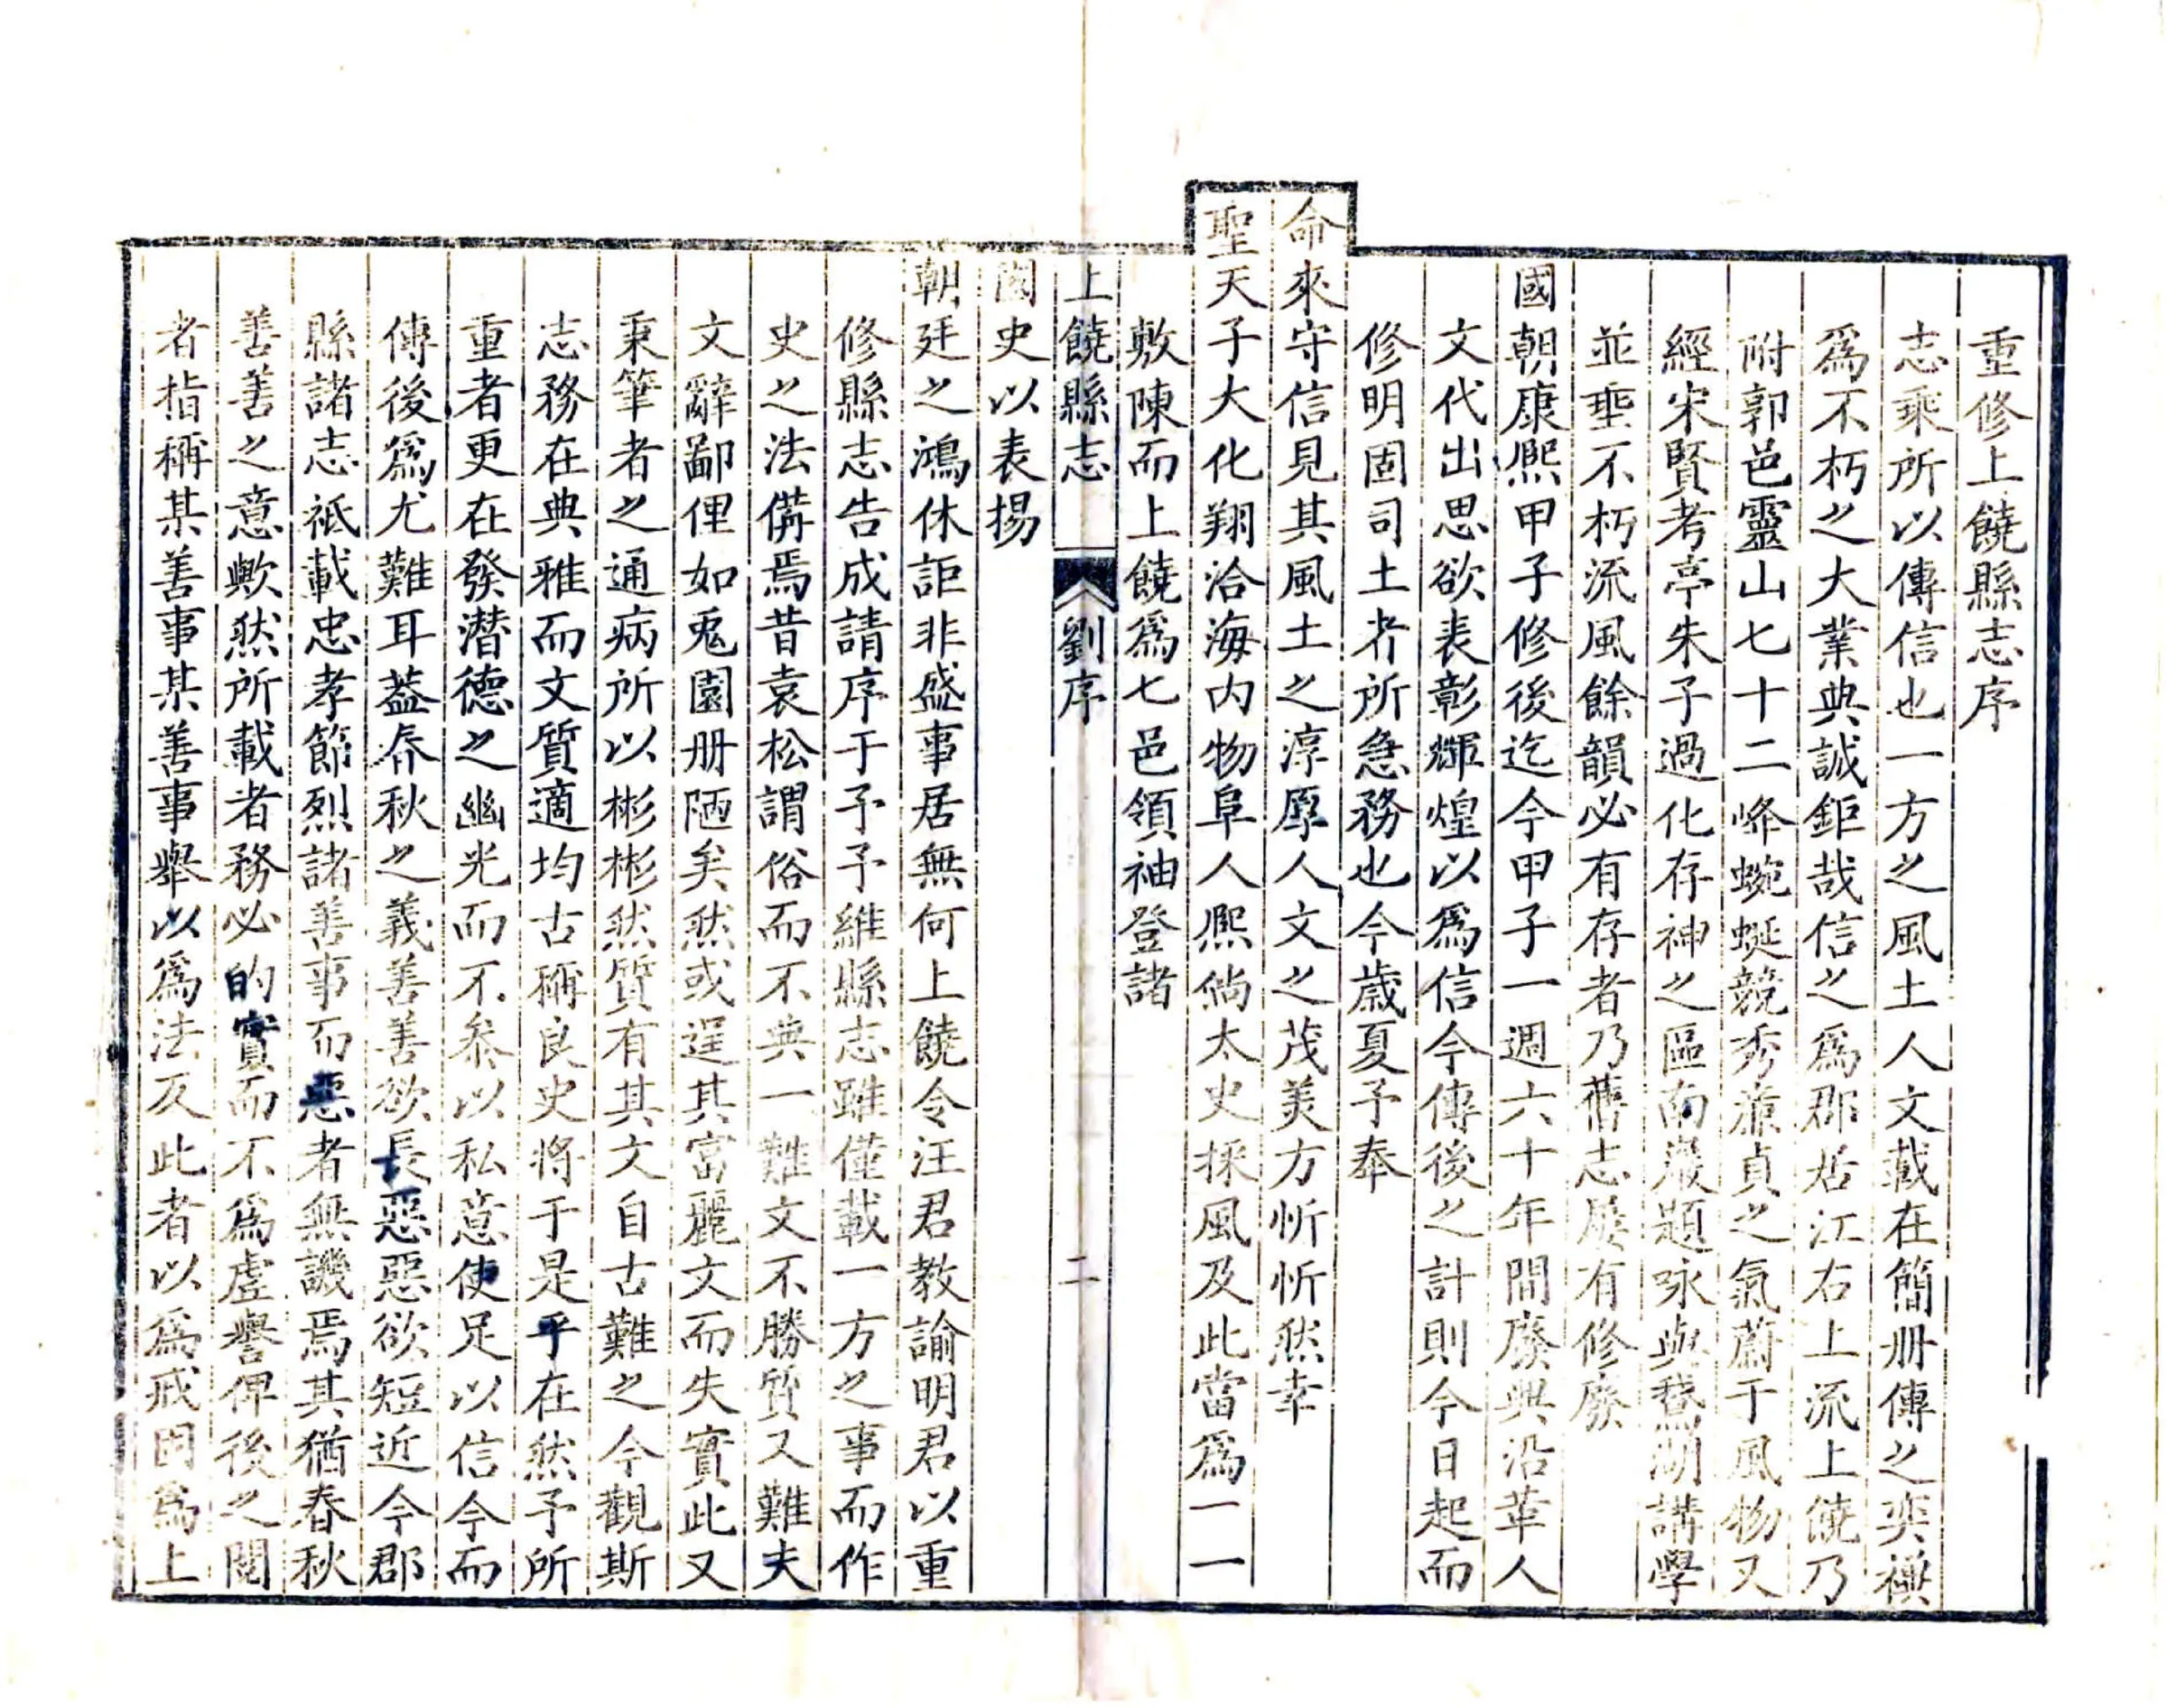 重修上饒縣志序
志乘所以傳信也一方之風土人文載在簡册傳之奕禩
爲不朽之大業典誠鉅哉信之爲郡居江右上流上饒乃
附郭邑靈山七十二峰蜿蜒競秀濂貞之氣蔚于風物又
經宋賢考亭朱子過化存神之區南巖題咏與鵞湖講學
並垂不朽流風餘韻必有存者乃舊志屢有修廢
國朝康熙甲子修後迄今甲子一週六十年間廢興沿革人
文代出思欲表彰輝煌以爲信今傳後之計則今日起而
修明固司土者所急務也今歲夏予奉
命來守信見其風土之淳厚人文之茂美方忻忻然幸
聖天子大化翔洽海内物阜人熈倘太史採風及此當爲一一
敷陳而上饒爲七邑領袖登諸
上饒縣志 劉序 二
國史以表揚
朝廷之鴻休詎非盛事居無何上饒令汪君教諭明君以重
修縣志告成請序于予予維縣志雖僅載一方之事而作
史之法備焉昔袁松謂俗而不典一難文不勝質又難夫
文辭鄙俚如兎園册陋矣然或逞其富麗文而失實此又
秉筆者之通病所以彬彬然質有其文自古難之今觀斯
志務在典雅而文質適均古稱良史將于是乎在然予所
重者更在發潛德之幽光而不叅以私意使足以信今而
傳後爲尤難耳葢春秋之義善善欲長惡惡欲短近今郡
縣諸志祗載忠孝節烈諸善事而惡者無譏焉其猶春秋
善善之意歟然所載者務必的實而不爲虛譽俾後之閱
者指稱某善事某善事舉以爲法反此者以爲戒因爲上